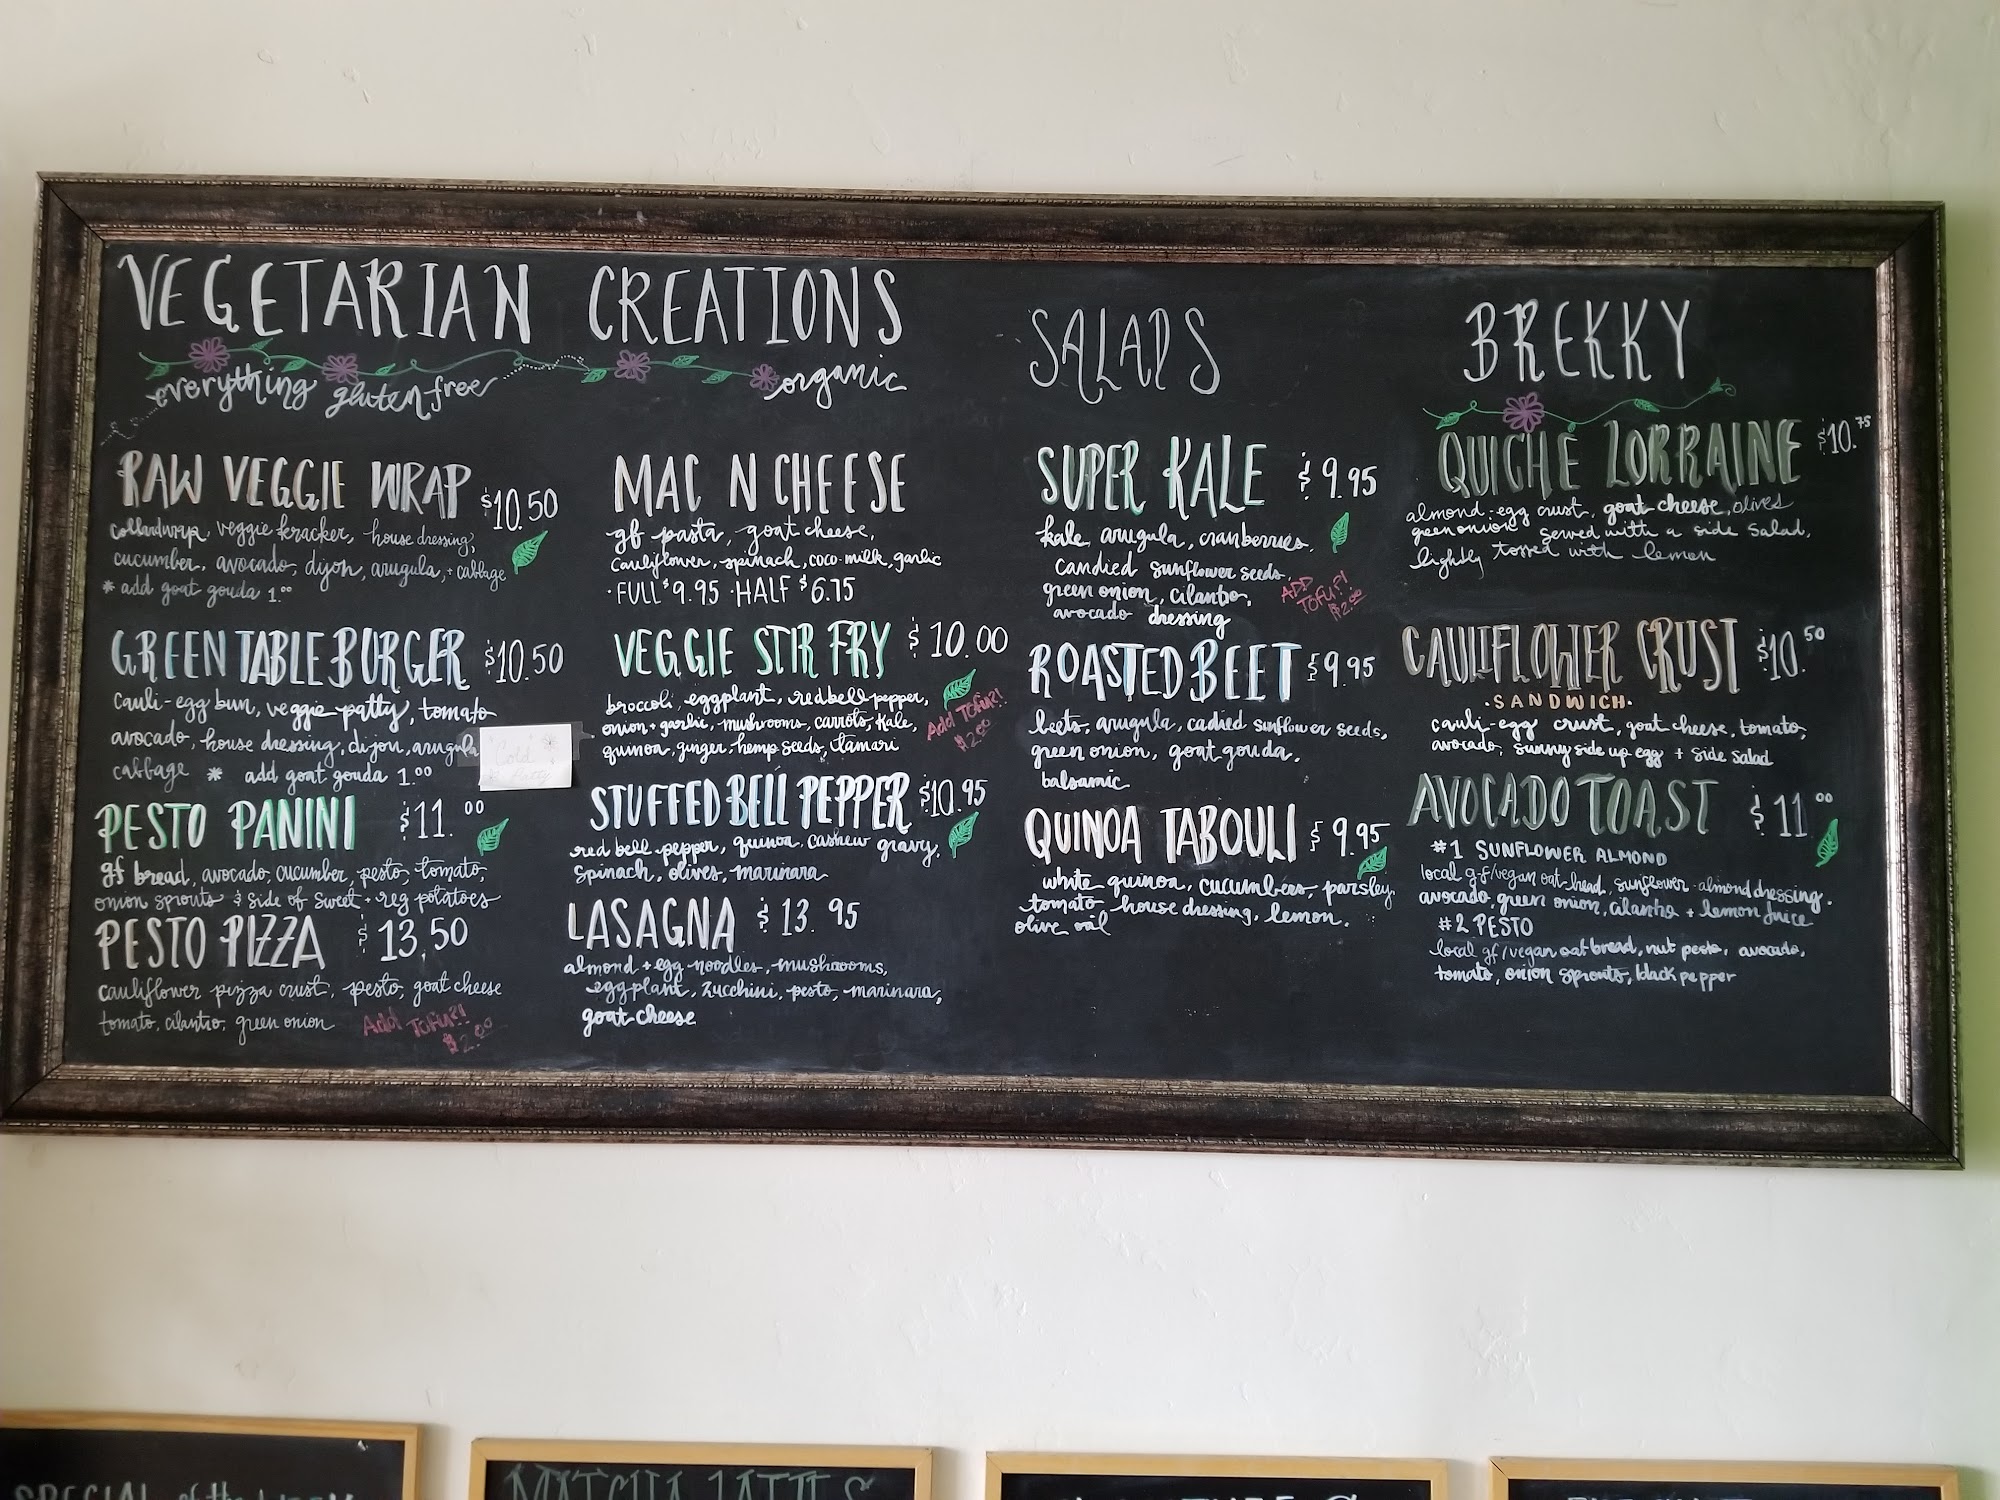 VEGETARIAN CREATIONS
everything gluten free
organic
RAW VEGGIE WRAP $10.50
collardwrap, veggie kracker, house dressing,
cucumber, avocado, dijon, arugula, + cabbage
* add goat gouda 1.00
GREEN TABLE BURGER $10.50
cauli-egg bun, veggie patty, tomato
avocado, house dressing, dijon, arugula
cabbage * add goat gouda 1.00
"Cold"
Patty
PESTO PANINI $11.00
gf bread, avocado, cucumber, pesto, tomato,
onion sprouts & side of sweet + reg potatoes
PESTO PIZZA $13.50
cauliflower pizza crust, pesto, goat cheese
tomato, cilantro, green onion
Add TOFU?!
$2.00
MAC N CHEESE
gf pasta, goat cheese,
Cauliflower, spinach, coco-milk, garlic
·FULL $9.95 ·HALF $6.75
VEGGIE STIR FRY $10.00
broccoli, eggplant, red bell pepper,
onion + garlic, mushrooms, carrots, kale,
quinoa, ginger, hemp seeds, tamari
Add TOFU?!
$2.00
STUFFED BELL PEPPER $10.95
red bell pepper, quinoa, cashew gravy,
Spinach, olives, marinara
LASAGNA $13.95
almond + egg noodles, mushrooms,
eggplant, zucchini, pesto, marinara,
goat cheese
SALADS
SUPER KALE $9.95
kale, arugula, cranberries,
candied sunflower seeds,
green onion, cilantro,
avocado dressing
ADD
TOFU?!
$2.00
ROASTED BEET $9.95
beets, arugula, cadied sunflower seeds,
green onion, goat gouda,
balsamic
QUINOA TABOULI $9.95
white quinoa, cucumbers, parsley,
tomato house dressing, lemon,
olive oil
BREKKY
QUICHE LORRAINE $10.75
almond-egg crust, goat cheese, olives
green onion served with a side salad,
lightly tossed with lemon
CAULIFLOWER CRUST $10.50
·SANDWICH·
cauli-egg crust, goat cheese, tomato,
avocado, sunny side up egg + side salad
AVOCADO TOAST $11.00
#1 SUNFLOWER ALMOND
local gf/vegan oat-bread, sunflower-almond dressing,
avocado, green onion, cilantro + lemon juice
#2 PESTO
local gf/vegan oat bread, nut pesto, avocado,
tomato, onion sprouts, black pepper
SPECIAL of the WEEK
MATCHA LATTES